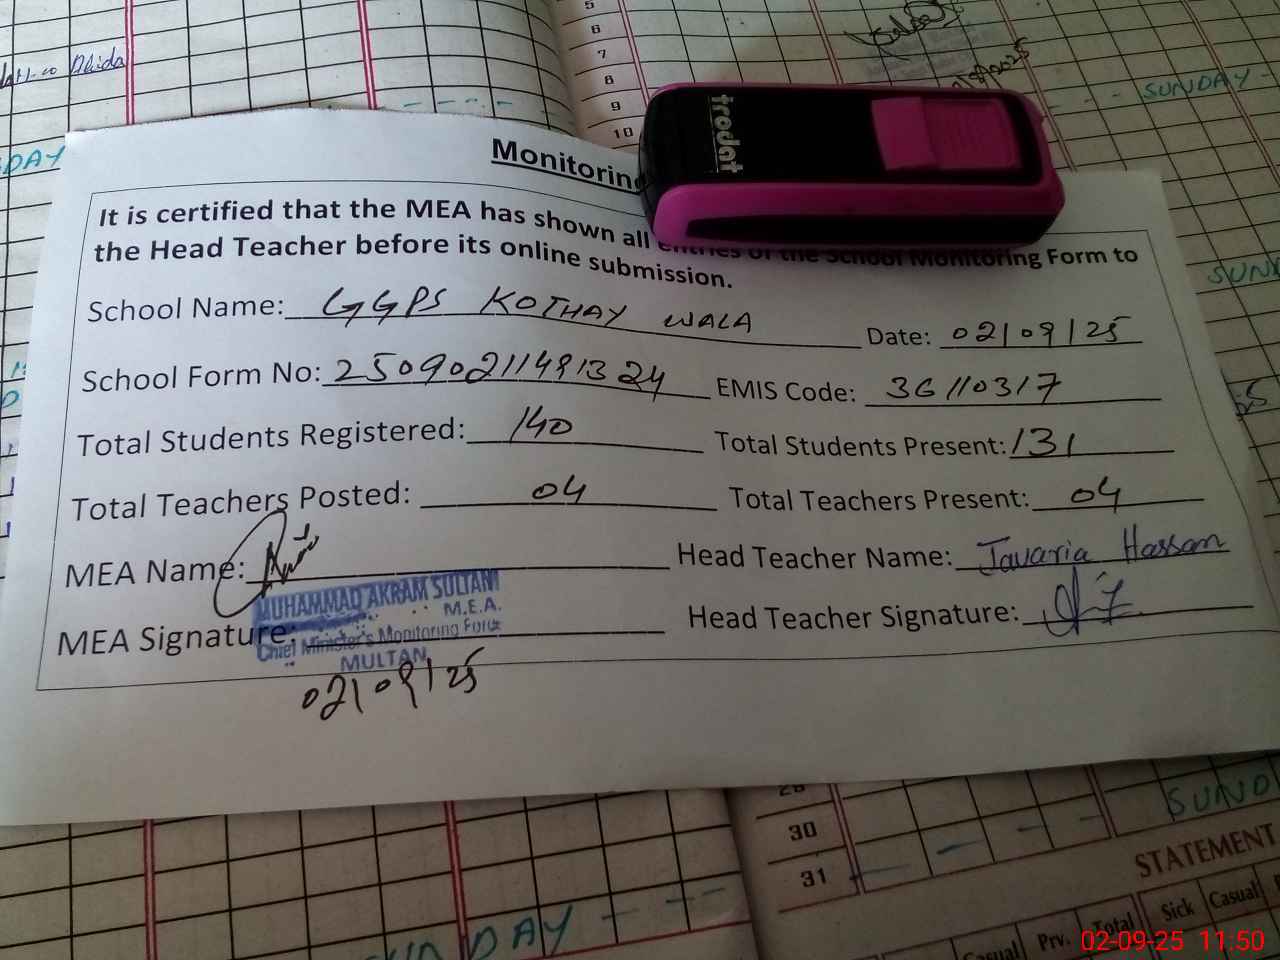 5
6
7
8
9
10
SUNDAY
DAY
trodat
Monitoring
It is certified that the MEA has shown all entries of the School Monitoring Form to
the Head Teacher before its online submission.
School Name: GGPS KOTHAY WALA
Date: 02/09/25
School Form No: 25090211491324
EMIS Code: 36110317
Total Students Registered: 140
Total Students Present: 131
Total Teachers Posted: 04
Total Teachers Present: 04
MEA Name:
Head Teacher Name: Javaria Hassan
MUHAMMAD AKRAM SULTANI
M.E.A.
MEA Signature:
Head Teacher Signature:
Chief Minister's Monitoring Force
MULTAN
02/09/25
30
31
SUNDAY
STATEMENT
Prv.
Total
Sick
Casual
02-09-25 11:50